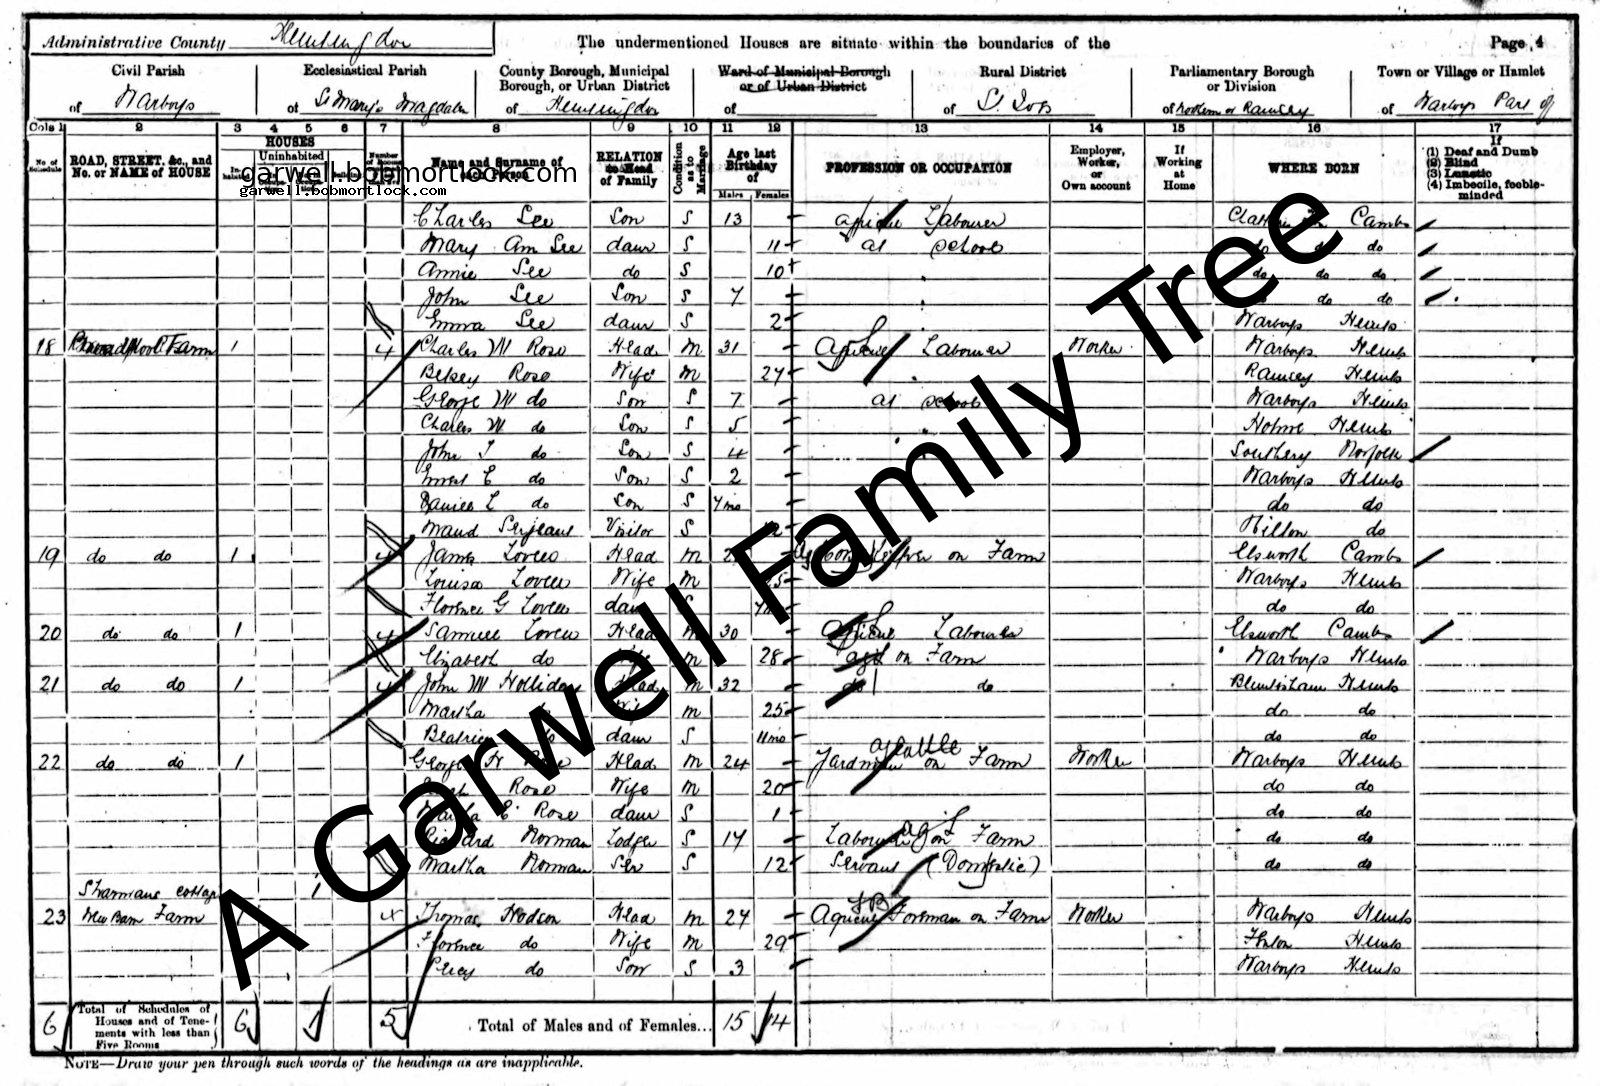 Administrative County Huntingdon The undermentioned Houses are situate within the boundaries of the Page 4
Civil Parish Ecclesiastical Parish County Borough, Municipal Borough, or Urban District Ward of Municipal Borough or of Urban District Rural District Parliamentary Borough or Division Town or Village or Hamlet
of Warboys of St Mary Magdalen of Huntingdon of of St. Ives of Northern or Ramsey of Warboys Part of
Cols 1 2 3 4 5 6 7 8 9 10 11 12 13 14 15 16 17
No. of Schedule ROAD, STREET, &c., and No. or NAME of HOUSE HOUSES Uninhabited Name and Surname of each Person RELATION to Head of Family Condition as to Marriage Age last Birthday of Males Females PROFESSION OR OCCUPATION Employer, Worker, or Own account If Working at Home WHERE BORN If (1) Deaf and Dumb (2) Blind (3) Lunatic (4) Imbecile, feeble-minded
garwell.bobmortlock.com
garwell.bobmortlock.com
Charles See Son S 13 Labourer Cambs
Mary Ann See daur S 11 at school do do
Annie See do S 10 do do do
John See Son S 7 do do
Emma See daur S 2 Warboys Hunts
18 Farm 1 4 Charles W Rose Head M 31 Labourer Worker Warboys Hunts
Betsey Rose Wife M 27 Ramsey Hunts
George W do Son S 7 at school Warboys Hunts
Charles W do Son S 5 Holme Hunts
John T do Son S 4 Southery Norfolk
Ernest E do Son S 2 Warboys Hunts
Daniel L do Son S 7mo do do
Maud Serjeant Visitor S 12 Hilton do
19 do do 1 4 James Lovell Head M on Farm Elsworth Cambs
Louisa Lovell Wife M 25 Warboys Hunts
Florence G Lovell daur S do do
20 do do 1 4 Samuel Lovell Head M 30 Labourer Elsworth Cambs
Elizabeth do M 28 on Farm Warboys Hunts
21 do do 1 4 John W Holliday Head M 32 do do Bluntisham Hunts
Martha M 25 do do
Beatrice daur S 11mo do do
22 do do 1 George Rose Head M 24 Yardman on Farm Worker Warboys Hunts
Rose Wife M 20 do do
Martha E Rose daur S 1 do do
Richard Norman Lodger S 17 Labourer on Farm do do
Martha Norman Ser S 12 Servant (Domestic) do do
Sharmans cottage 1
23 New Barn Farm 1 4 Thomas Hodson Head M 27 Foreman on Farm Worker Warboys Hunts
Florence do Wife M 29 Hunts
Percy do Son S 3 Warboys Hunts
6 Total of Schedules of Houses and of Tenements with less than Five Rooms 6 1 5 Total of Males and of Females... 15 14
NOTE—Draw your pen through such words of the headings as are inapplicable.
A Garwell Family Tree